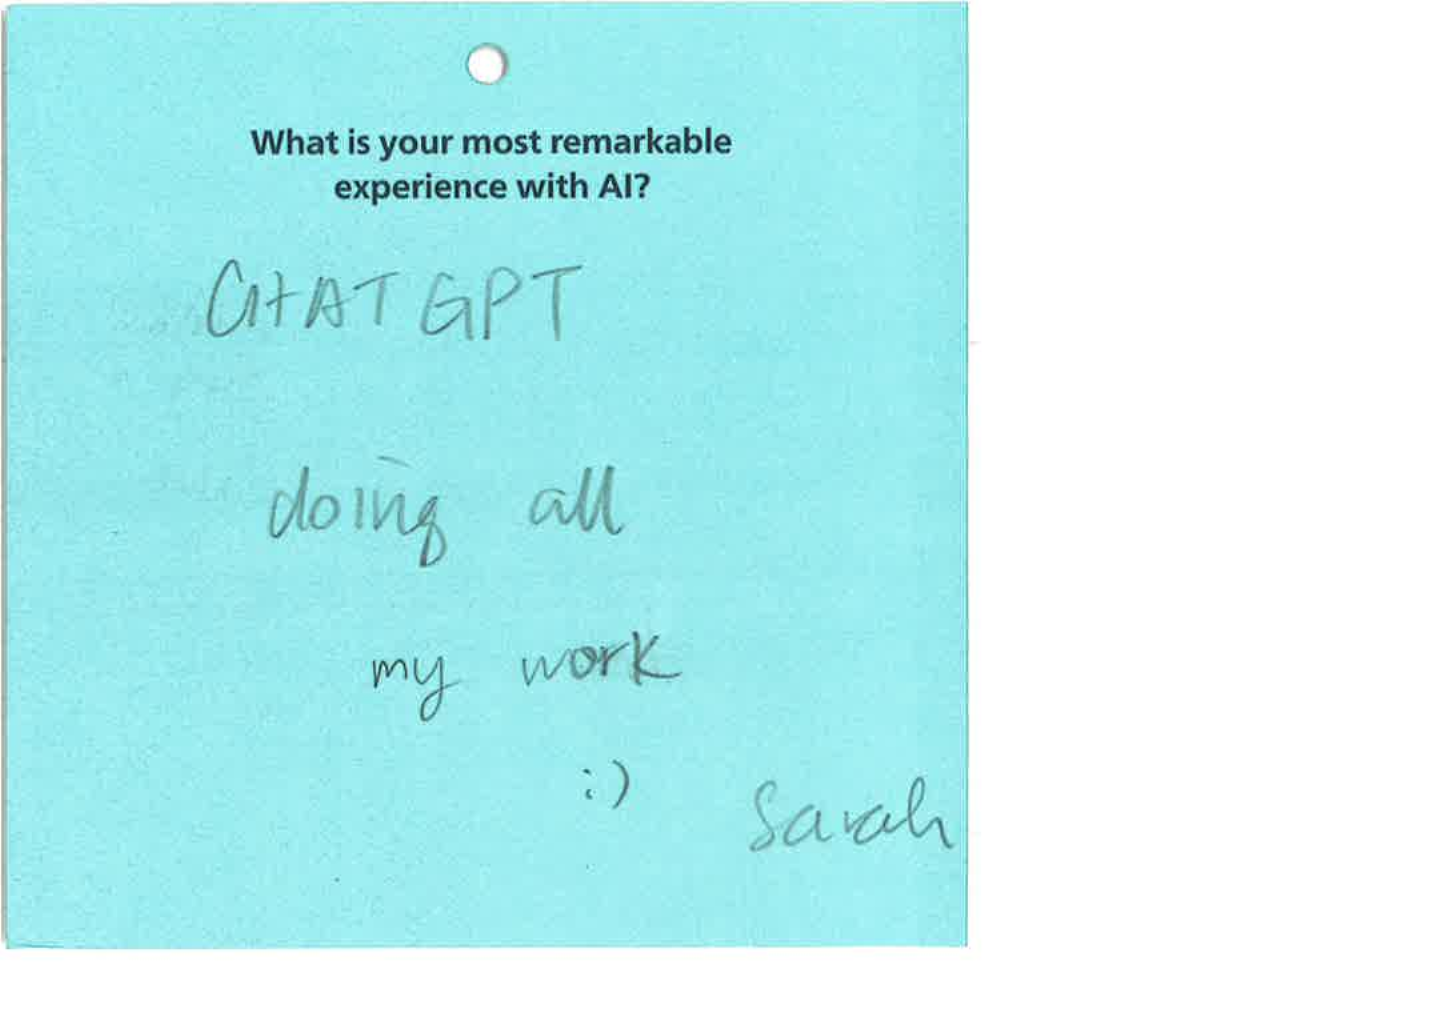 What is your most remarkable
experience with AI?
CHAT GPT
doing all
my work
:)
Sarah